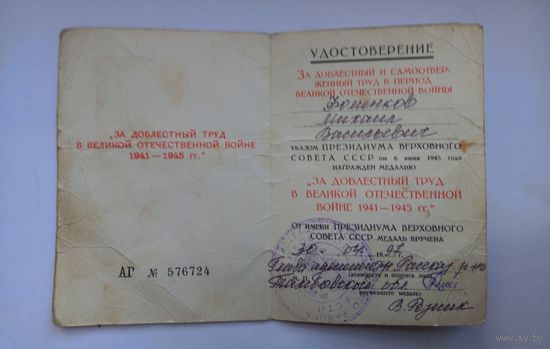 „ЗА ДОБЛЕСТНЫЙ ТРУД
В ВЕЛИКОЙ ОТЕЧЕСТВЕННОЙ ВОЙНЕ
1941—1945 гг."
АГ № 576724
УДОСТОВЕРЕНИЕ
ЗА ДОБЛЕСТНЫЙ И САМООТВЕР-
ЖЕННЫЙ ТРУД В ПЕРИОД
ВЕЛИКОЙ ОТЕЧЕСТВЕННОЙ ВОЙНЫ
Фоменков
Михаил
Васильевич
УКАЗОМ ПРЕЗИДИУМА ВЕРХОВНОГО
СОВЕТА СССР от 6 июня 1945 года
НАГРАЖДЕН МЕДАЛЬЮ
„ЗА ДОБЛЕСТНЫЙ ТРУД
В ВЕЛИКОЙ ОТЕЧЕСТВЕННОЙ
ВОЙНЕ 1941—1945 гг."
ОТ ИМЕНИ ПРЕЗИДИУМА ВЕРХОВНОГО
СОВЕТА СССР МЕДАЛЬ ВРУЧЕНА
30 04 1997 г.
Глава администр. Рассказ. р-на
(должность и подпись лица,
Тамбовской обл.
вручившего медаль)
В. Резник
www.ay.by